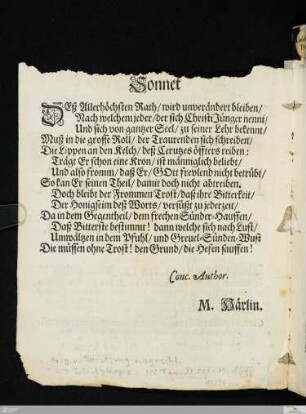 Sonnet
DEß Allerhöchsten Rath/ wird unverändert bleiben/
Nach welchem jeder/ der sich Christi Jünger nennt/
Und sich von gantzer Seel/ zu seiner Lehr bekennt/
Muß in die grosse Roll/ der Traurenden sich schreiben/
Die Lippen an den Kelch/ deß Creutzes öffters reiben:
Trägt Er schon eine Kron/ ist männiglich beliebt/
Und also fromm/ daß Er/ GOtt freylend nicht betrübt/
So kan Er seinen Theil/ damit doch nicht abtreiben.
Doch bleibt der Frommen Trost/ daß ihre Bitterkeit/
Der Honigseim deß Worts/ versüßt zu jederzeit/
Da in dem Gegentheil/ dem frechen Sünder-Hauffen/
Daß Bitterste bestimmt! dann welche sich nach Lust/
Umwältzen in dem Pfuhl/ und Greuel-Sünden-Wust
Die müssen ohne Trost! den Grund/ die Hefen sauffen!
Conc. Author.
M. Härlin.